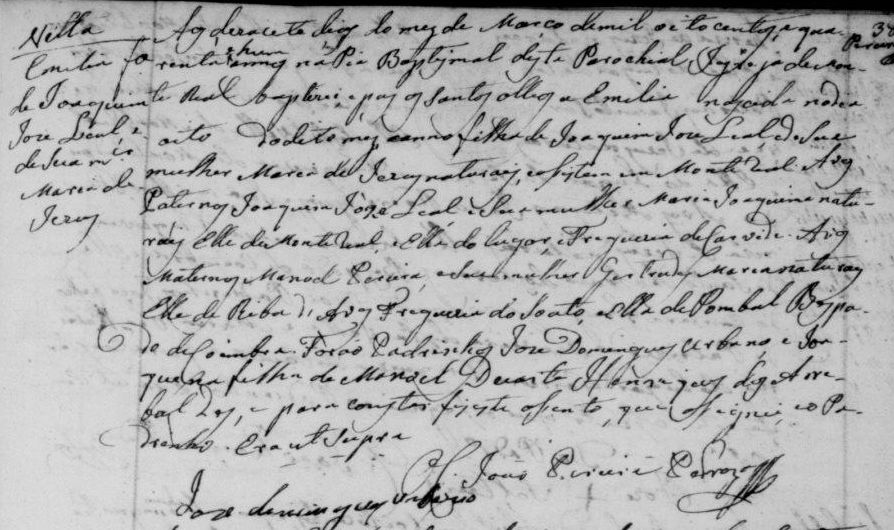 Villa
Emilia fª
de Joaquim
Jozé Leal, e
de sua mer
Maria de
Jezus
38
Aos dezacete dias do mez de Março de mil oito centos, e qua-
renta e hum annos na Pia Baptismal desta Parochial Igreja de Mon-
te Real baptizei, e puz os santos olleos a Emilia nascida no dia
oito do dito mez e anno filha de Joaquim Jozé Leal, e de sua
mulher Maria de Jezus naturaes, e asistem em Monte Real. Avós
Paternos Joaquim Jozé Leal e Sua mulher Maria Joaquina natu-
raes Elle de Monte Real, e Ella do lugar, e Freguezia de Carvide. Avós
Maternos Manoel Pereira, e Sua mulher Gertrudes Maria naturaes
Elle de Riba d'Aves Freguezia do Souto, e Ella de Pombal Bispa-
do de Coimbra. Forão Padrinhos Jozé Domingues Urbano, e Joa-
quina filha de Manoel Duarte Henriques dos Arra-
baldes, e para constar fiz este asento, que asignei, e o Pa-
drinho. Era ut Supra
João Pereira Pedrozo
Joze domingues urbano